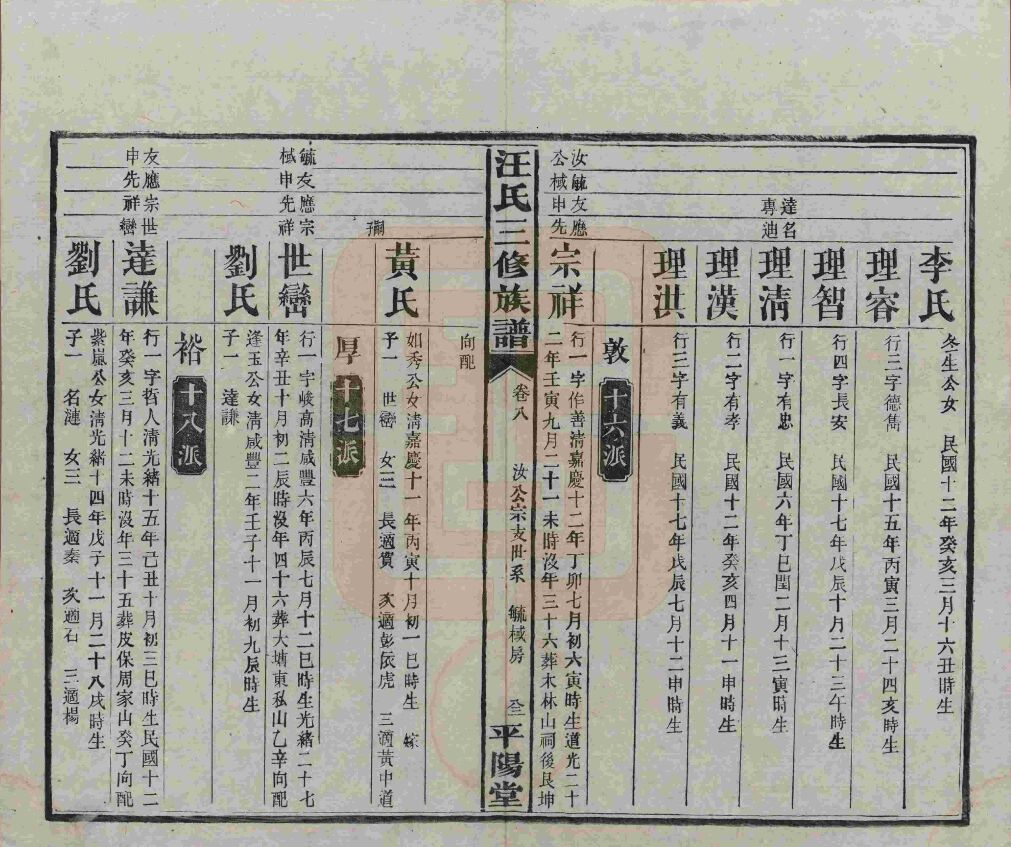 李氏
冬生公女 民國十二年癸亥三月十六丑時生
理容
行三字德雋 民國十五年丙寅三月二十四亥時生
理智
行四字長安 民國十七年戊辰十月二十三午時生
達名
專迪
理清
行一字有忠 民國六年丁巳閏二月十三寅時生
理漢
行二字有孝 民國十二年癸亥四月十一申時生
理洪
行三字有義 民國十七年戊辰七月十二申時生
敦 十六派
汝毓友應
公棫申先
宗祥
行一字作善清嘉慶十二年丁卯七月初六寅時生道光二十
二年壬寅九月二十一未時沒年三十六葬木林山祠後艮坤
汪氏三修族譜 卷八 汝公宗支世系 毓棫房 平陽堂
向配
黃氏
如秀公女清嘉慶十一年丙寅十月初一巳時生 嫁
子一 世巒 女三 長適賓 次適彭依虎 三適黃中道
嗣子
厚 十七派
毓友應宗
棫申先祥
世巒
行一字峻高清咸豐六年丙辰七月十二巳時生光緒二十七
年辛丑十月初二辰時沒年四十六葬大塘東私山乙辛向配
劉氏
逢玉公女清咸豐二年壬子十一月初九辰時生
子一 達謙
裕 十八派
友應宗世
申先祥巒
達謙
行一字哲人清光緒十五年己丑十月初三巳時生民國十二
年癸亥三月十二未時沒年三十五葬皮保周家山癸丁向配
劉氏
紫嵐公女清光緒十四年戊子十一月二十八戌時生
子一 名漣 女三 長適秦 次適石 三適楊